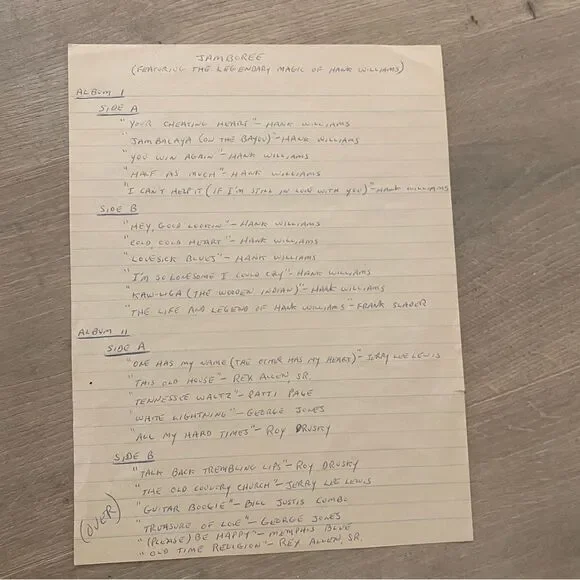 JAMBOREE
(FEATURING THE LEGENDARY MAGIC OF HANK WILLIAMS)
ALBUM I
SIDE A
"YOUR CHEATING HEART" - HANK WILLIAMS
"JAMBALAYA (ON THE BAYOU)" - HANK WILLIAMS
"YOU WIN AGAIN" - HANK WILLIAMS
"HALF AS MUCH" - HANK WILLIAMS
"I CAN'T HELP IT (IF I'M STILL IN LOVE WITH YOU)" - HANK WILLIAMS
SIDE B
"HEY, GOOD LOOKIN" - HANK WILLIAMS
"COLD COLD HEART" - HANK WILLIAMS
"LOVESICK BLUES" - HANK WILLIAMS
"I'M SO LONESOME I COULD CRY" - HANK WILLIAMS
"KAW-LIGA (THE WOODEN INDIAN)" - HANK WILLIAMS
"THE LIFE AND LEGEND OF HANK WILLIAMS" - FRANK SLADER
ALBUM II
SIDE A
"ONE HAS MY NAME (THE OTHER HAS MY HEART)" - JERRY LEE LEWIS
"THIS OLD HOUSE" - REX ALLEN, SR.
"TENNESSEE WALTZ" - PATTI PAGE
"WHITE LIGHTNING" - GEORGE JONES
"ALL MY HARD TIMES" - ROY DRUSKY
SIDE B
"TALK BACK TREMBLING LIPS" - ROY DRUSKY
"THE OLD COUNTRY CHURCH" - JERRY LEE LEWIS
"GUITAR BOOGIE" - BILL JUSTIS COMBO
"TREASURE OF LOVE" - GEORGE JONES
"(PLEASE) BE HAPPY" - MEMPHIS BLUE
"OLD TIME RELIGION" - REX ALLEN, SR.
(OVER)